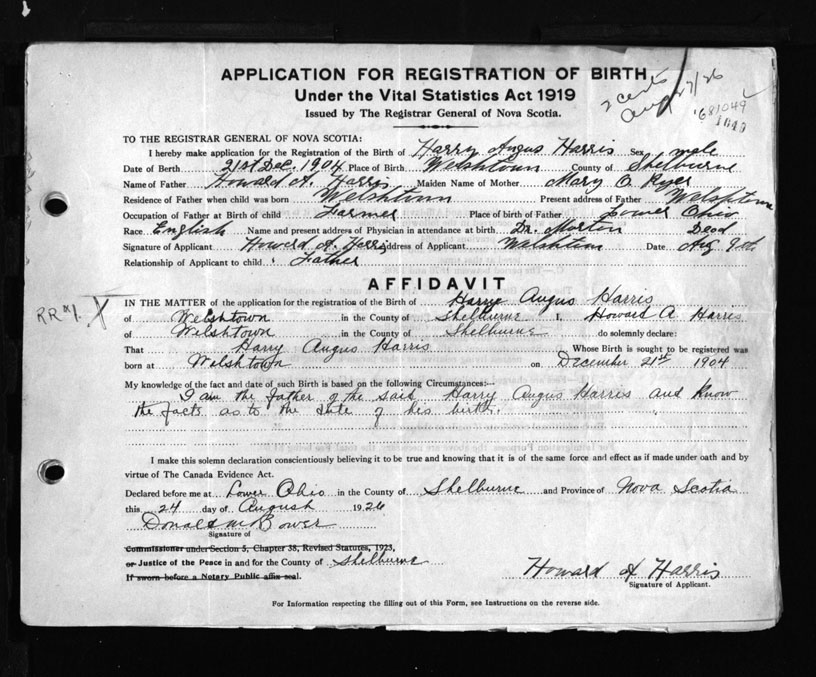 APPLICATION FOR REGISTRATION OF BIRTH
Under the Vital Statistics Act 1919
Issued by The Registrar General of Nova Scotia.
2 cents
Aug 27/26
TO THE REGISTRAR GENERAL OF NOVA SCOTIA:
I hereby make application for the Registration of the Birth of Harry Angus Harris Sex male
Date of Birth 21st Dec. 1904 Place of Birth Welshtown County of Shelburne
Name of Father Howard A. Harris Maiden Name of Mother Mary O. Ryer
Residence of Father when child was born Welshtown Present address of Father Welshtown
Occupation of Father at Birth of child Farmer Place of birth of Father Lower Ohio
Race English Name and present address of Physician in attendance at birth Dr. Morton Dead
Signature of Applicant Howard A. Harris Address of Applicant Welshtown Date Aug 9th
Relationship of Applicant to child Father
AFFIDAVIT
RR #1. X
IN THE MATTER of the application for the registration of the Birth of Harry Angus Harris
of Welshtown in the County of Shelburne I, Howard A Harris
of Welshtown in the County of Shelburne do solemnly declare:
That Harry Angus Harris Whose Birth is sought to be registered was
born at Welshtown on December 21st 1904
My knowledge of the fact and date of such Birth is based on the following Circumstances:—
I am the father of the said Harry Angus Harris and know
the facts as to the date of his birth.
I make this solemn declaration conscientiously believing it to be true and knowing that it is of the same force and effect as if made under oath and by
virtue of The Canada Evidence Act.
Declared before me at Lower Ohio in the County of Shelburne and Province of Nova Scotia
this 24 day of August 1926
Donald M Bower
Signature of
Commissioner under Section 5, Chapter 38, Revised Statutes, 1923,
or Justice of the Peace in and for the County of Shelburne
If sworn before a Notary Public affix seal.
Howard A Harris
Signature of Applicant.
For Information respecting the filling out of this Form, see Instructions on the reverse side.